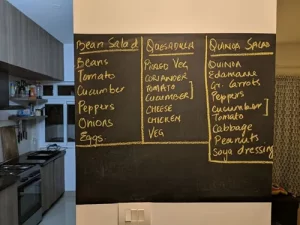 Bean Salad
Beans
Tomato
Cucumber
Peppers
Onions
Eggs
QUESADILLA
VEG
CORIANDER
TOMATO
CUCUMBER
CHEESE
CHICKEN
VEG
QUINOA SALAD
QUINOA
Edamame
Gr. Carrots
Peppers
Cucumber
Tomato
Cabbage
Peanuts
Soya dressing